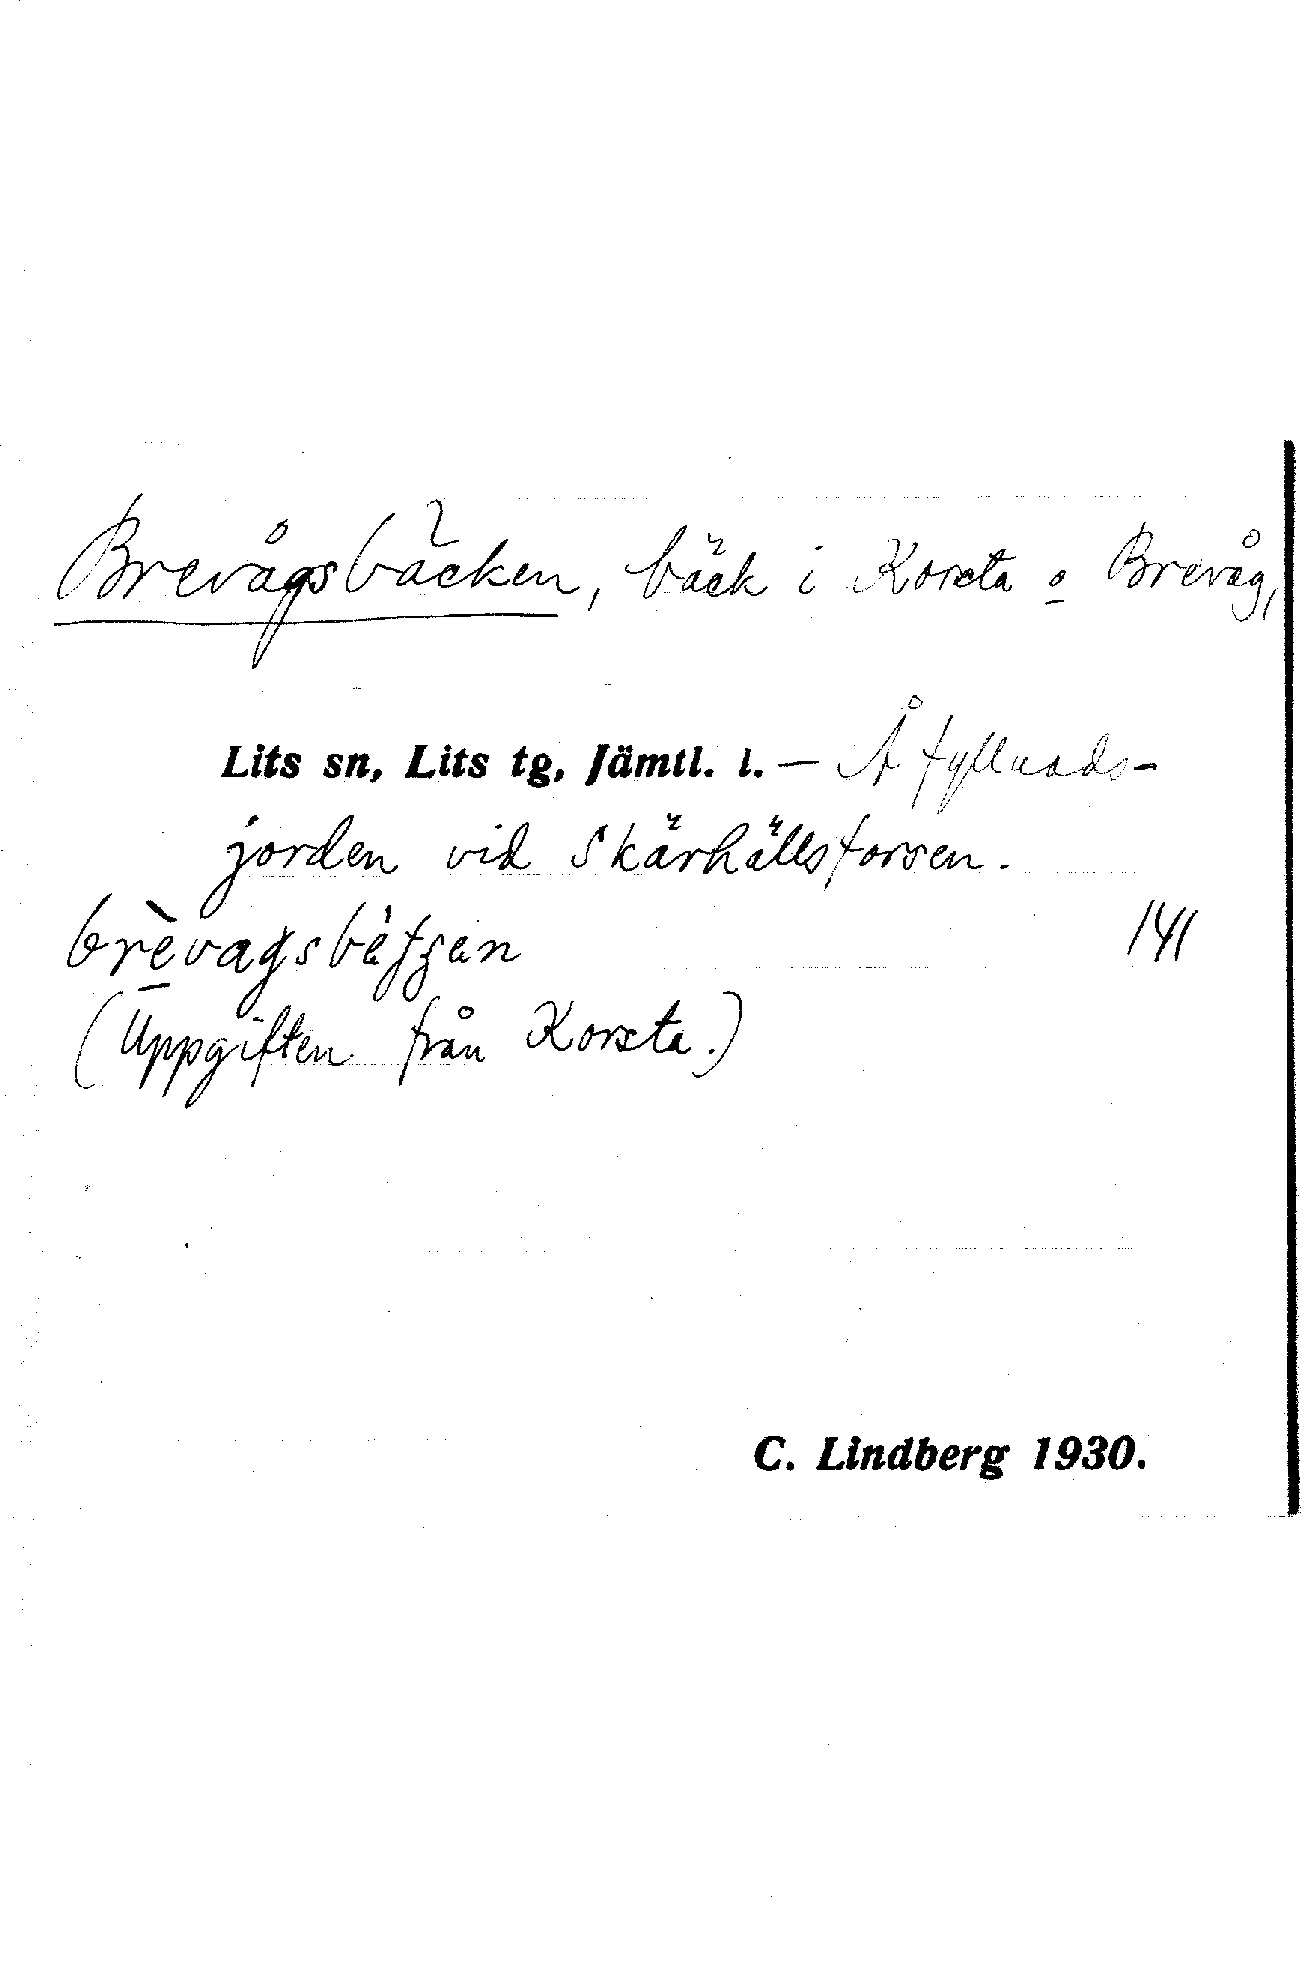 Brevågsbäcken, bäck i Korsta o Brevåg,
Lits sn, Lits tg, Jämtl. l. – Å fyllnads-
jorden vid Skärhällsforsen.
141
(Uppgiften från Korsta.)
C. Lindberg 1930.